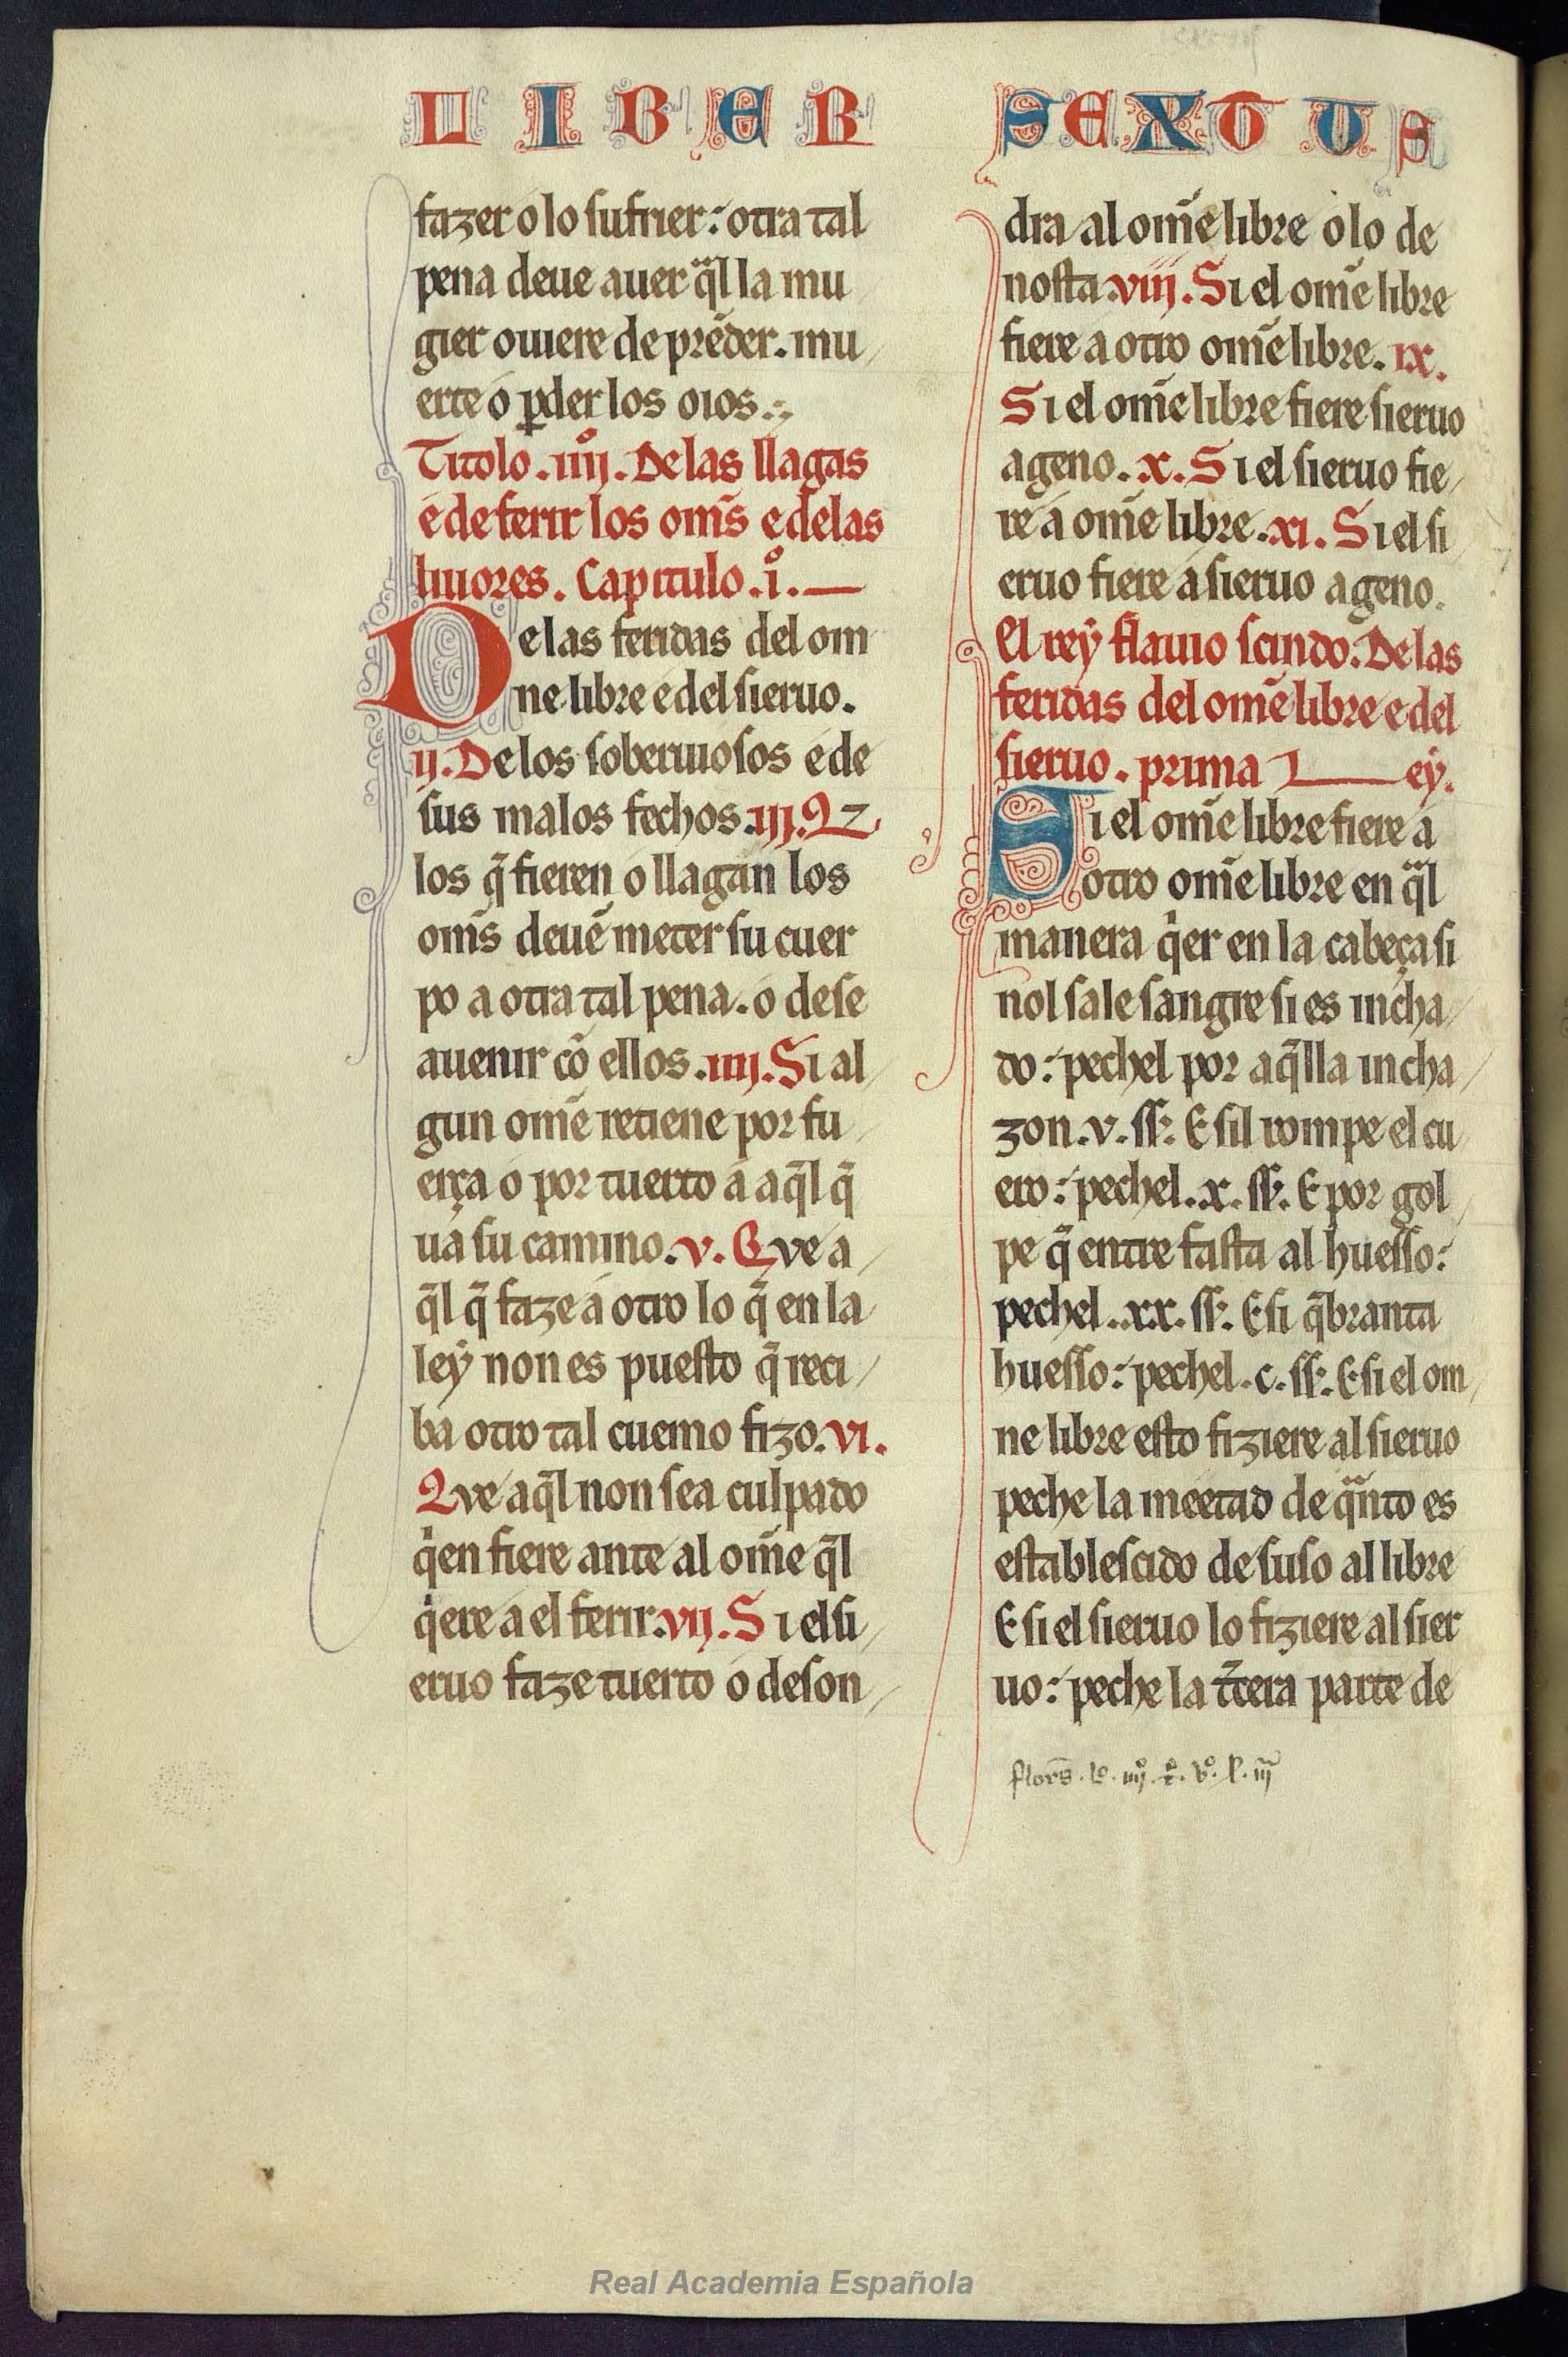 LIBER SEXTUS
fazer o lo sufrier: otra tal
pena deue auer q̃l la mu
gier ouiere de prẽder. mu
erte o ꝑder los oios.
Titolo .iiij. De las llagas
e de ferir los om̃s e de las
liuores. Capitulo .i.
De las feridas del om
ne libre e del sieruo.
ij. De los soberuiosos e de
sus malos fechos .iij. Q̃
los q̃ fieren o llagan los
om̃s deuẽ meter su cuer
po a otra tal pena. o de se
auenir cõ ellos .iiij. Si al
gun om̃e retiene por fu
erça o por tuerto a aq̃l q̃
ua su camino. v. Que a
q̃l q̃ faze a otro lo q̃ en la
leẏ non es puesto q̃ reci
ba otro tal cuemo fizo. vi.
Que aq̃l non sea culpado
q̇en fiere ante al om̃e q̃l
q̇ere a el ferir. vij. Si el si
eruo faze tuerto o deson
dra al om̃e libre o lo de
nosta. viij. Si el om̃e libre
fiere a otro om̃e libre. ix.
Si el om̃e libre fiere sieruo
ageno. x. Si el sieruo fie
re a om̃e libre. xi. Si el si
eruo fiere a sieruo ageno.
El reẏ flauio scindo. De las
feridas del om̃e libre e del
sieruo. prima Leẏ.
Si el om̃e libre fiere a
otro om̃e libre en q̃l
manera q̇er en la cabeça si
nol sale sangre si es incha
do: pechel por aq̃lla incha
zon. v. ss̃. E sil rompe el cu
ero: pechel. x. ss̃. E por gol
pe q̃ entre fasta al huesso:
pechel. xx. ss̃. E si q̃branta
huesso: pechel. c. ss̃. E si el om
ne libre esto fiziere al sieruo
peche la meetad de q̃nto es
establescido de suso al libre
E si el sieruo lo fiziere al sier
uo: peche la t̃cera parte de
Real Academia Española